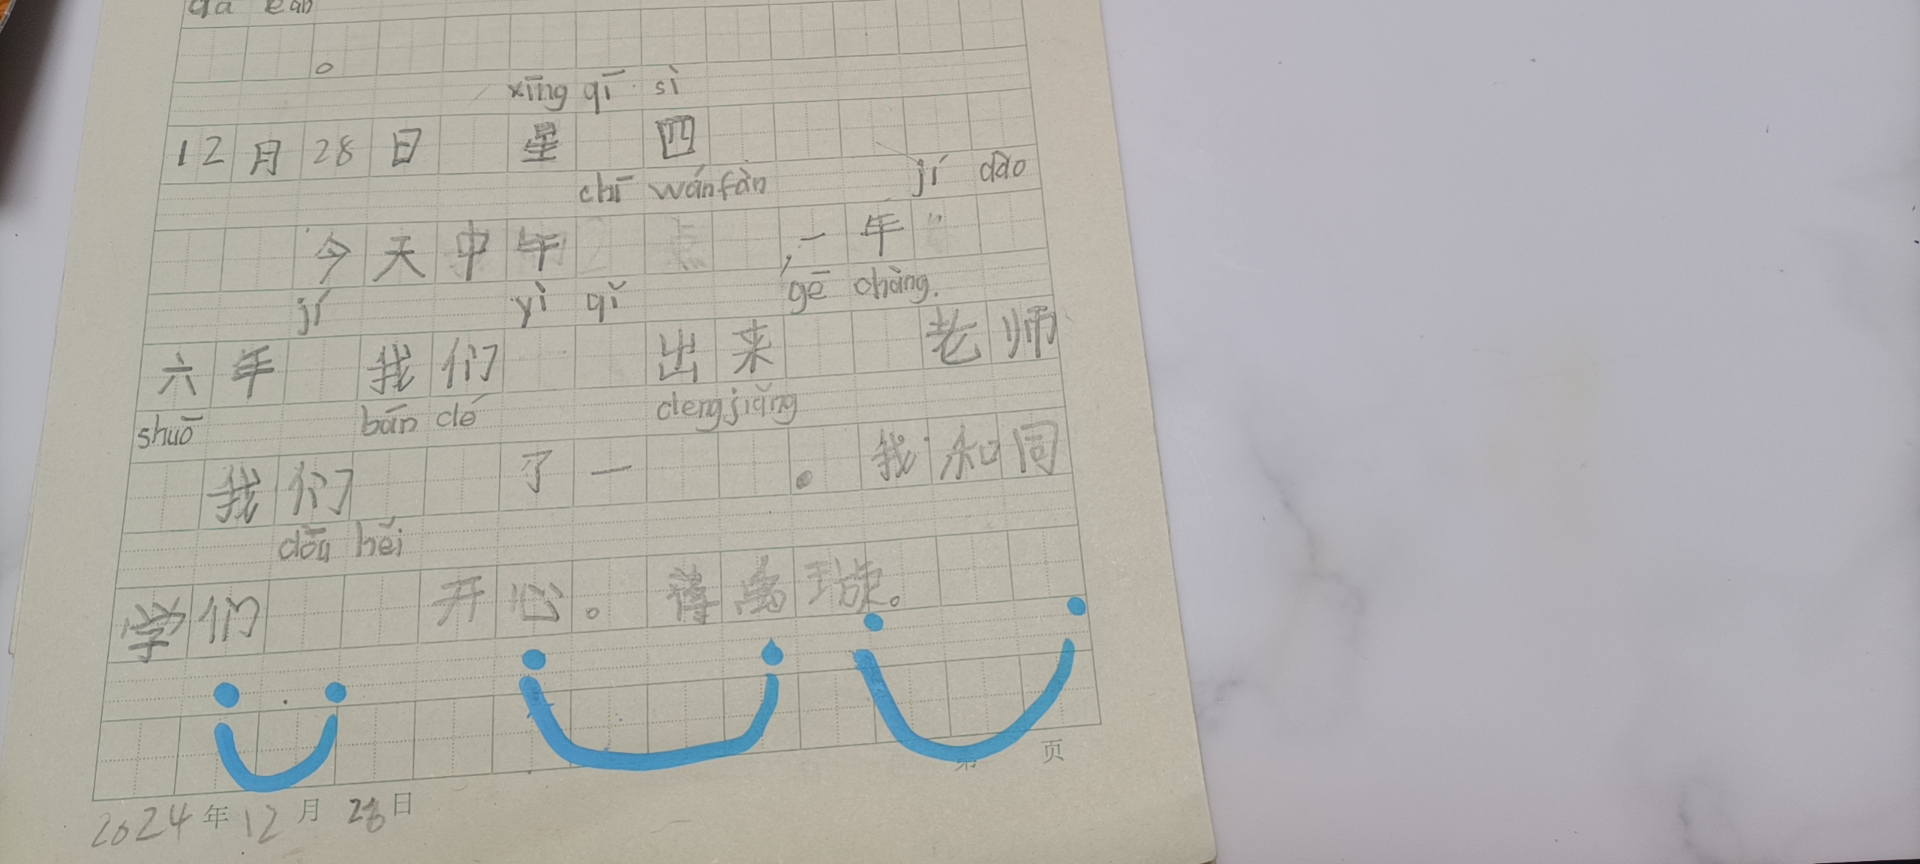 。
xīng qī sì
12月28日 星 四
chī wánfàn jí dào
今天中午 ,一年
jí yì qǐ gē chàng.
六年 我们 出来 老师
shuō bān dé dengjiǎng
我们 了一 。我和同
dōu hěi
学们 开心。
页
2024年12月28日